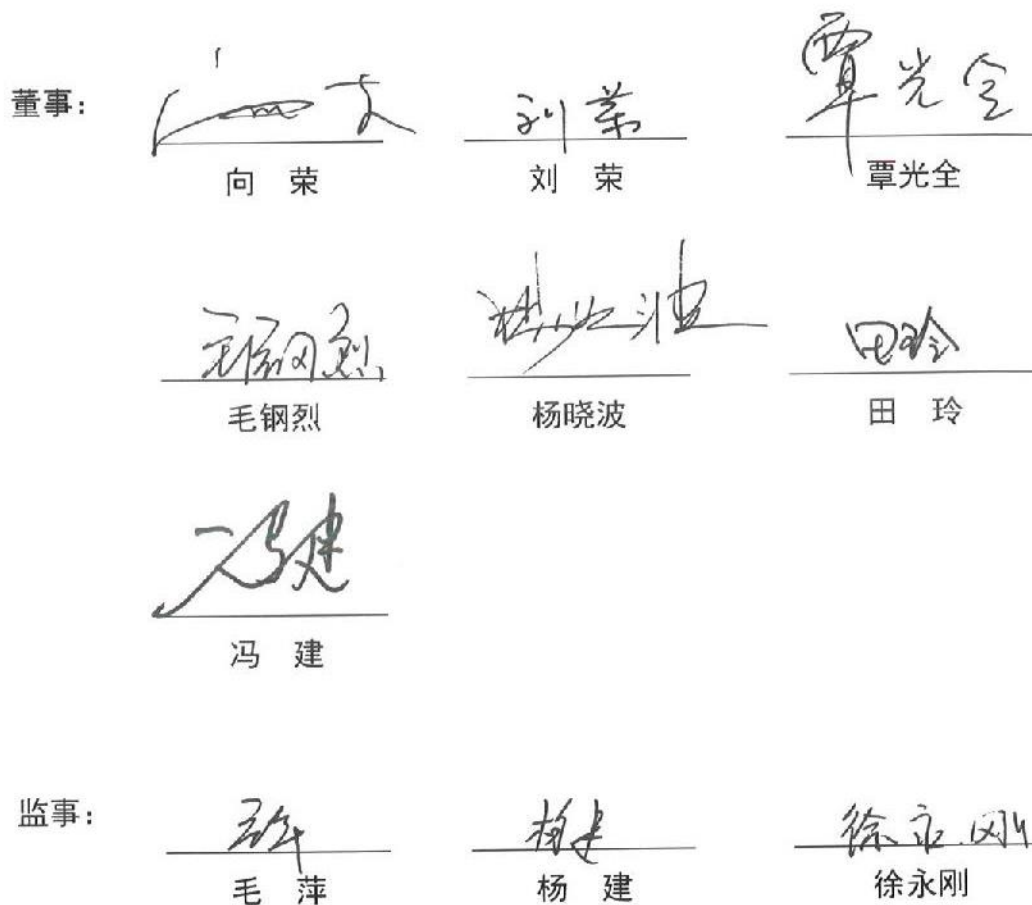 董事： 刘荣 覃光全
向 荣 刘 荣 覃光全
毛钢烈 杨晓波 田玲
毛钢烈 杨晓波 田 玲
冯建
冯 建
监事： 毛萍 杨建 徐永刚
毛 萍 杨 建 徐永刚